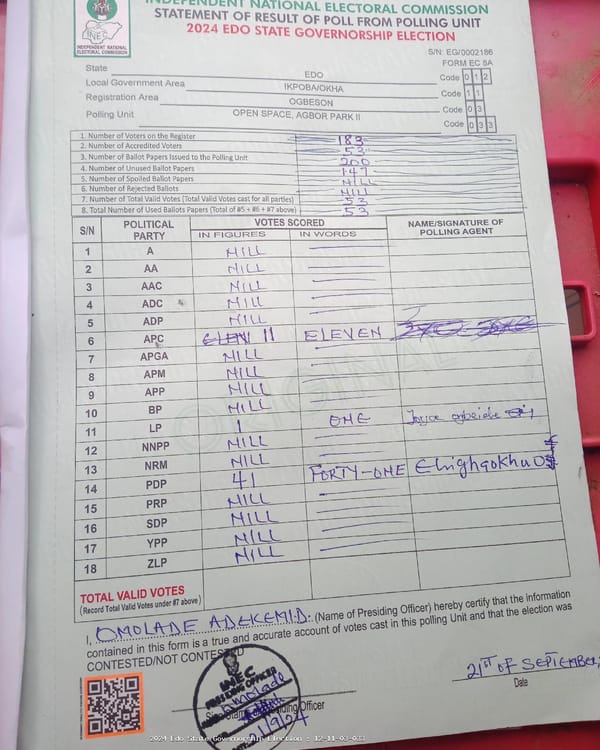 INDEPENDENT NATIONAL ELECTORAL COMMISSION
STATEMENT OF RESULT OF POLL FROM POLLING UNIT
2024 EDO STATE GOVERNORSHIP ELECTION
INEC
INDEPENDENT NATIONAL
ELECTORAL COMMISSION
S/N: EG/0002186
FORM EC 8A
State EDO Code 0 1 2
Local Government Area IKPOBA/OKHA Code 1 1
Registration Area OGBESON Code 0 3
Polling Unit OPEN SPACE, AGBOR PARK II Code 0 3 3
1. Number of Voters on the Register 183
2. Number of Accredited Voters 53
3. Number of Ballot Papers Issued to the Polling Unit 200
4. Number of Unused Ballot Papers 147
5. Number of Spoiled Ballot Papers NILL
6. Number of Rejected Ballots NILL
7. Number of Total Valid Votes (Total Valid Votes cast for all parties) 53
8. Total Number of Used Ballots Papers (Total of #5 + #6 + #7 above) 53
S/N POLITICAL PARTY VOTES SCORED NAME/SIGNATURE OF POLLING AGENT
IN FIGURES IN WORDS
1 A NILL
2 AA NILL
3 AAC NILL
4 ADC NILL
5 ADP NILL
6 APC 11 ELEVEN
7 APGA NILL
8 APM NILL
9 APP NILL
10 BP NILL
11 LP 1 ONE Joyce
12 NNPP NILL
13 NRM NILL
14 PDP 41 FORTY-ONE
15 PRP NILL
16 SDP NILL
17 YPP NILL
18 ZLP NILL
TOTAL VALID VOTES
(Record Total Valid Votes under #7 above)
I, OMOLADE ADEKEMI.D. (Name of Presiding Officer) hereby certify that the information
contained in this form is a true and accurate account of votes cast in this polling Unit and that the election was
CONTESTED/NOT CONTESTED
INEC
PRESIDING OFFICER
Omolade
21ST OF SEPTEMBER,
Date
2024 Edo State Governorship Election : 12-11-03-033